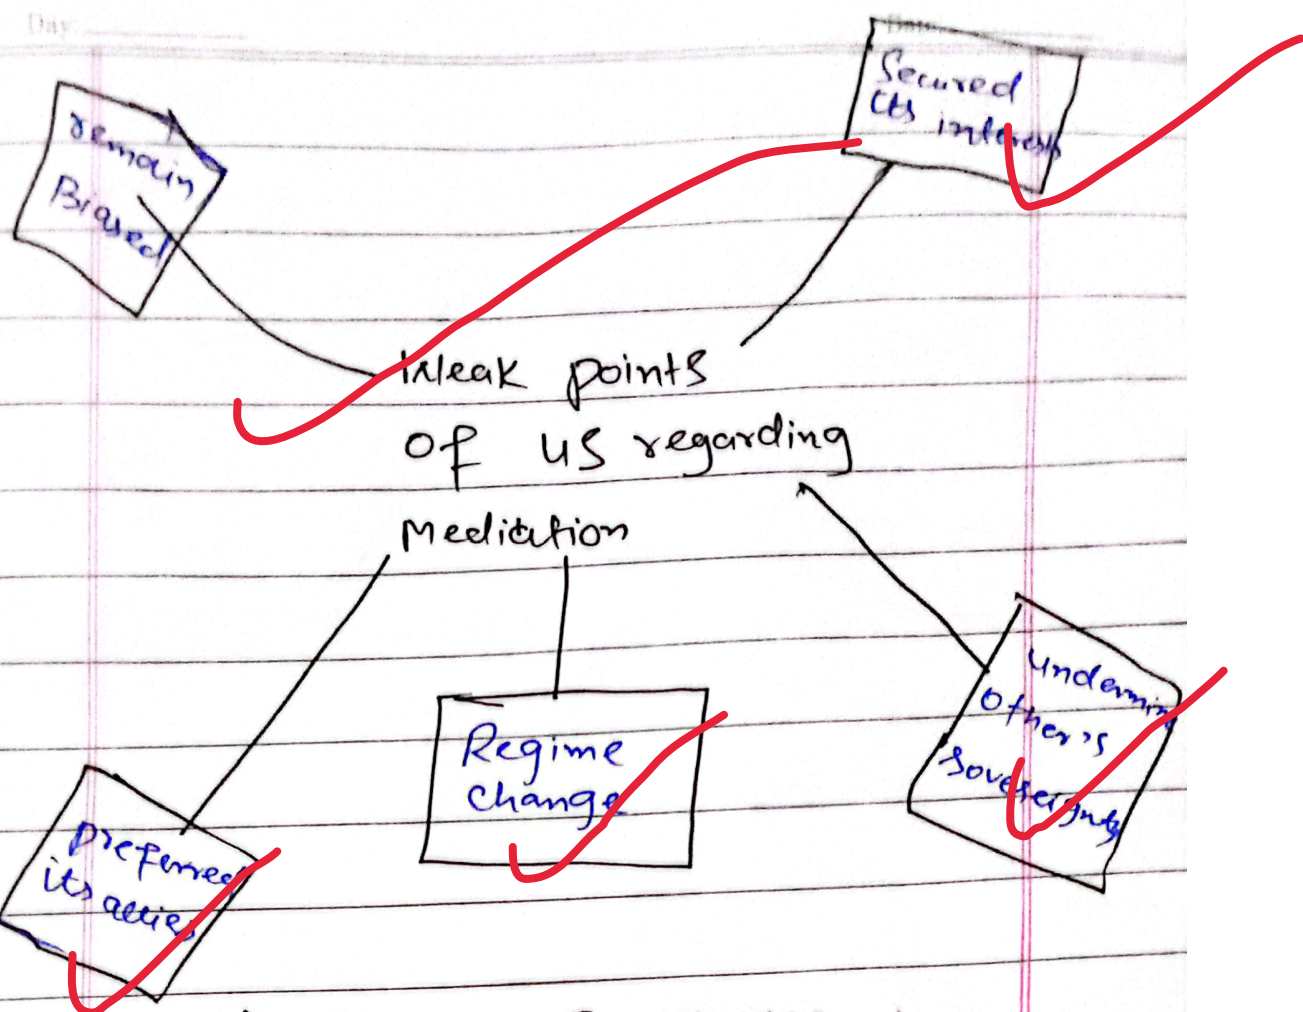 Day:
Date:
Secured
its interests
remain
Biased
Weak points
of US regarding
Mediation
undermin
other's
sovereignty
Regime
change
preferred
its allies